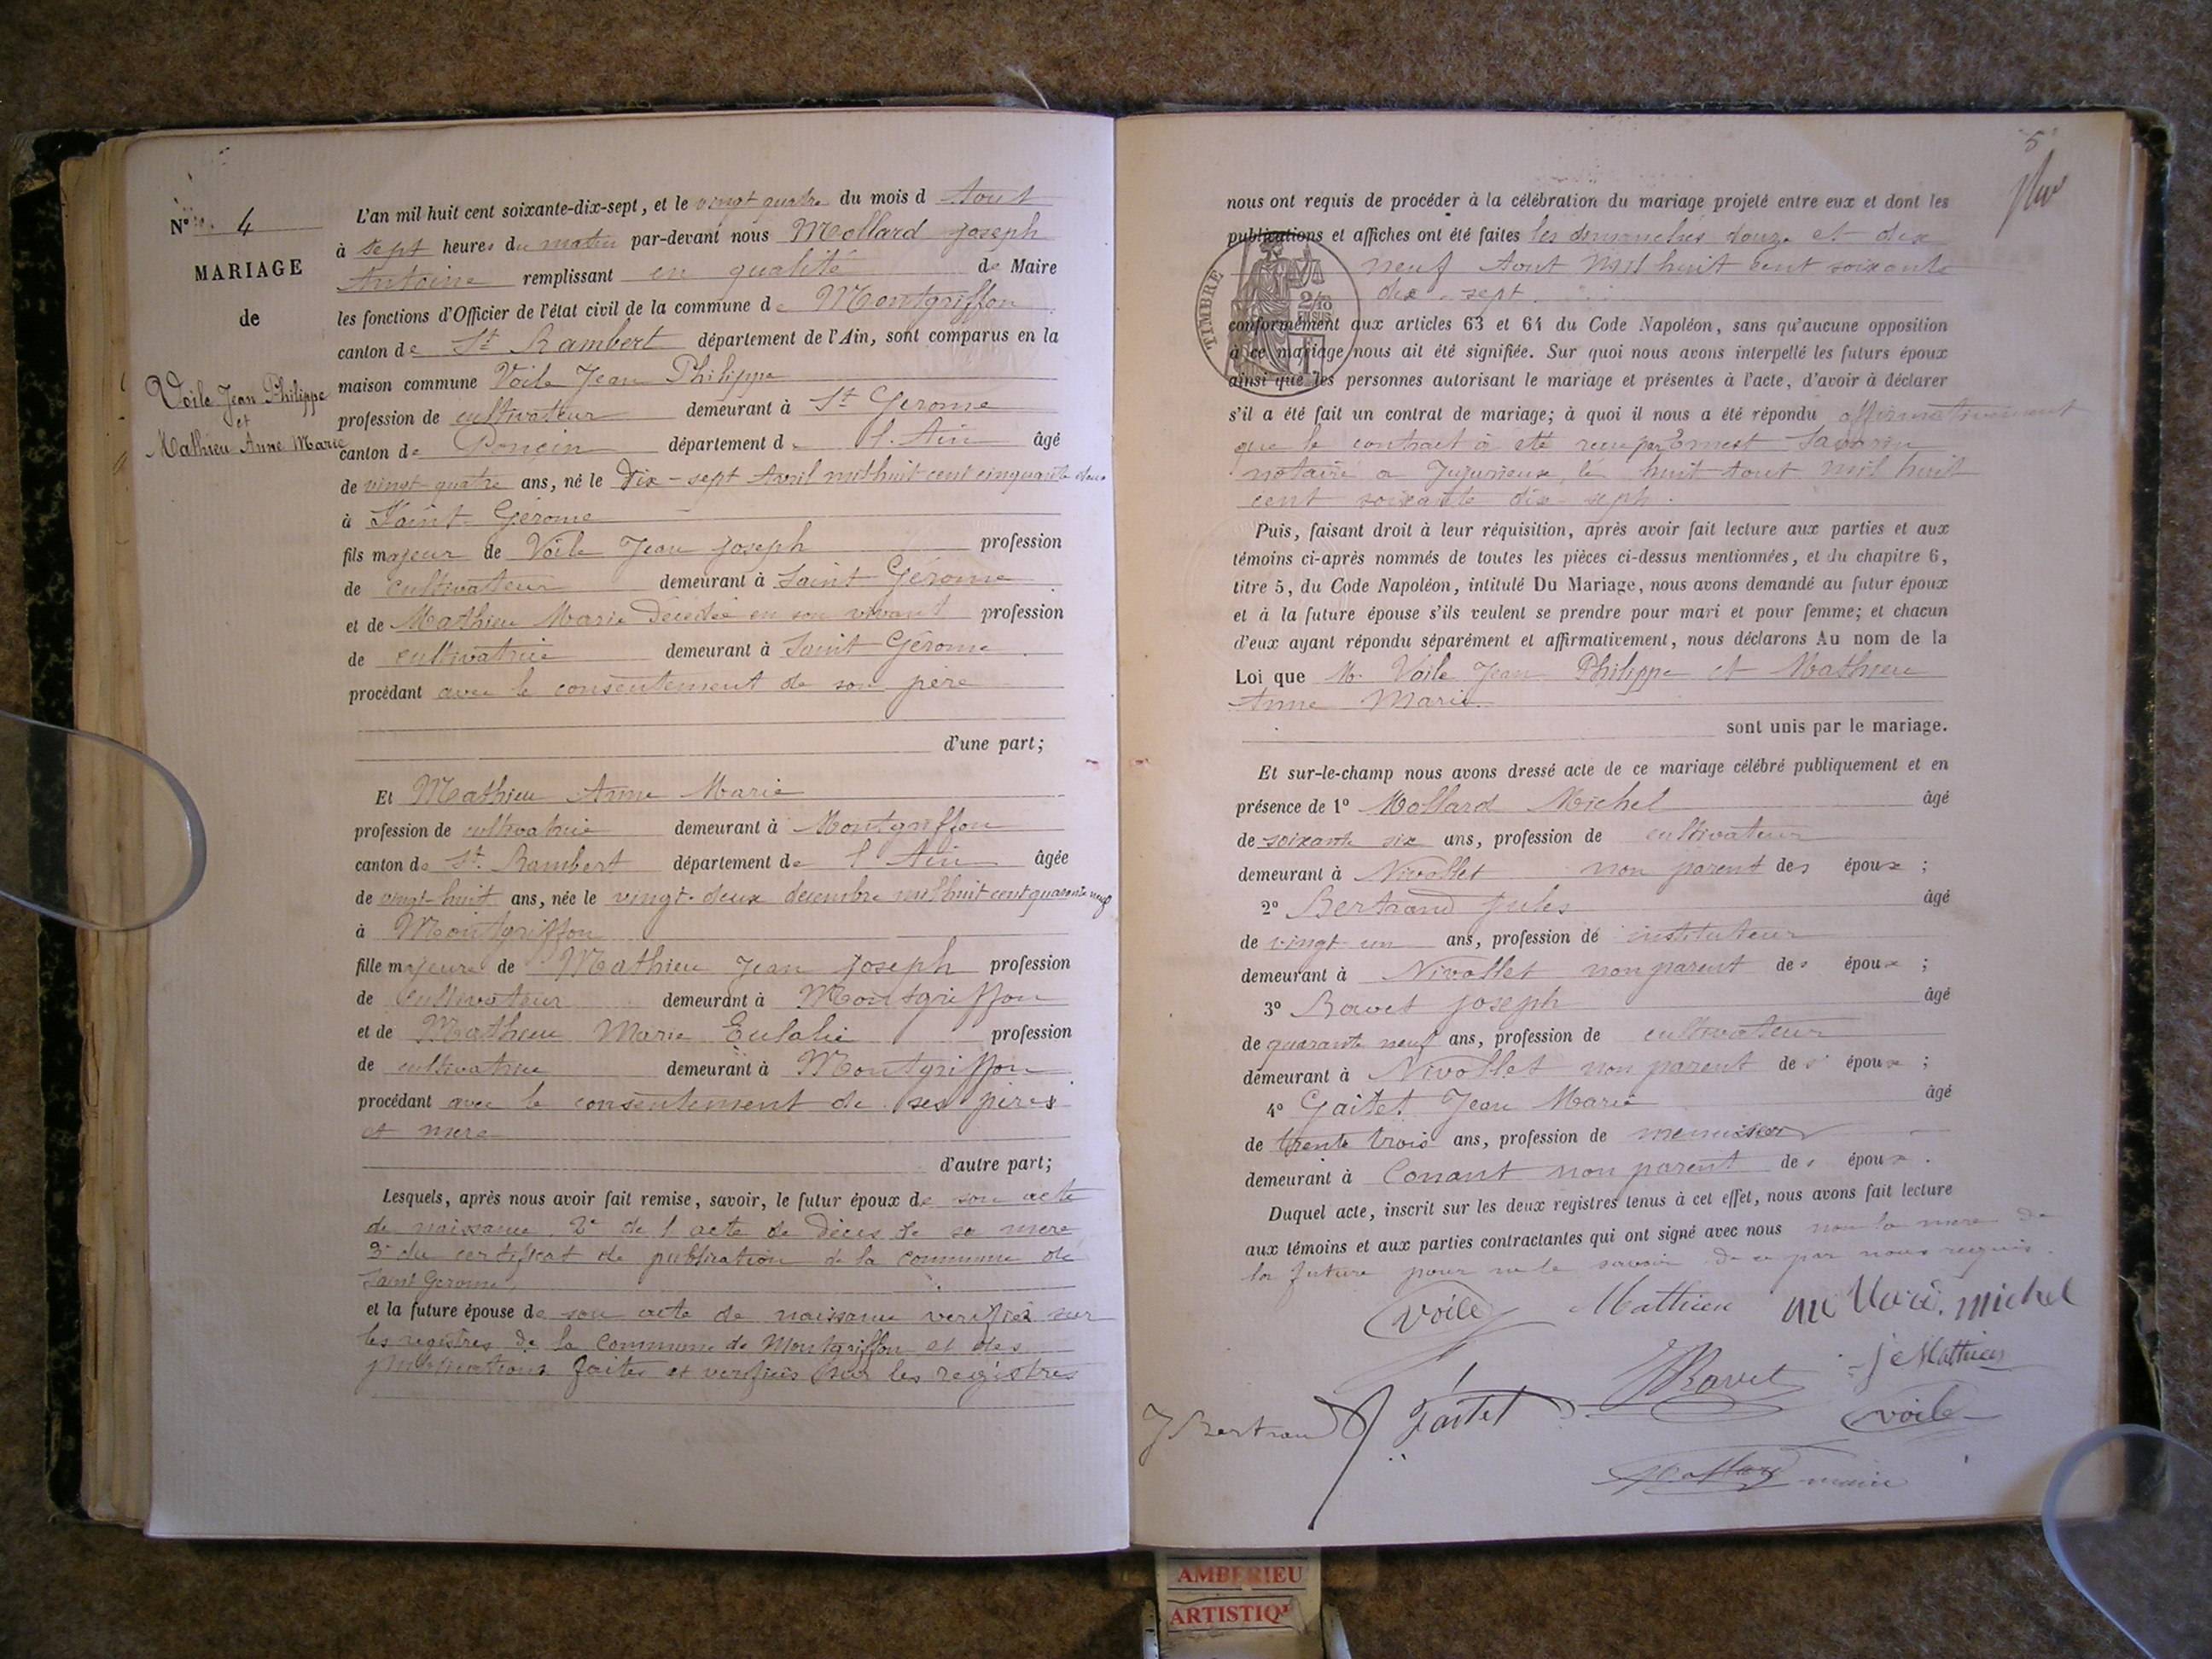 N° 4
MARIAGE
de
Voile Jean Philippe
et
Mathieu Anne Marie
L'an mil huit cent soixante-dix-sept, et le vingt quatre du mois d Aout
à sept heures du matin par-devant nous Mollard Joseph
Antoine remplissant en qualité de Maire
les fonctions d'Officier de l'état civil de la commune de Montgriffon
canton de St Rambert département de l'Ain, sont comparus en la
maison commune Voile Jean Philippe
profession de cultivateur demeurant à St Gerome
canton de Poncin département de l'Ain âgé
de vingt-quatre ans, né le Dix-sept Avril mil huit cent cinquante deux
à Saint Gérome
fils majeur de Voile Jean Joseph profession
de cultivateur demeurant à Saint Gérome
et de Mathieu Marie Décédée en son vivant profession
de cultivatrice demeurant à Saint Gérome
procédant avec le consentement de son père
d'une part;
Et Mathieu Anne Marie
profession de cultivatrice demeurant à Montgriffon
canton de St Rambert département de l'Ain âgée
de vingt-huit ans, née le vingt-deux décembre mil huit cent quarante neuf
à Montgriffon
fille majeure de Mathieu Jean Joseph profession
de cultivateur demeurant à Montgriffon
et de Mathieu Marie Eulalie profession
de cultivatrice demeurant à Montgriffon
procédant avec le consentement de ses pères
et mere
d'autre part;
Lesquels, après nous avoir fait remise, savoir, le futur époux de son acte
de naissance. 2° de l'acte de décès de sa mere
3° du certificat de publication de la commune de
Saint Gerome,
et la future épouse de son acte de naissance verifiés sur
les registres de la Commune de Montgriffon et des
publications faites et verifiées sur les registres
5
nous ont requis de procéder à la célébration du mariage projeté entre eux et dont les
publications et affiches ont été faites les dimanches douze et dix
neuf Aout Mil huit cent soixante
dix-sept.
TIMBRE
2/10
EN SUS
conformément aux articles 63 et 64 du Code Napoléon, sans qu'aucune opposition
à ce mariage nous ait été signifiée. Sur quoi nous avons interpellé les futurs époux
ainsi que les personnes autorisant le mariage et présentes à l'acte, d'avoir à déclarer
s'il a été fait un contrat de mariage; à quoi il nous a été répondu affirmativement
que le contrat à été reçu par Ernest Savarin
notaire a Jujurieux le huit Aout Mil huit
cent soixante dix-seph.
Puis, faisant droit à leur réquisition, après avoir fait lecture aux parties et aux
témoins ci-après nommés de toutes les pièces ci-dessus mentionnées, et du chapitre 6,
titre 5, du Code Napoléon, intitulé Du Mariage, nous avons demandé au futur époux
et à la future épouse s'ils veulent se prendre pour mari et pour femme; et chacun
d'eux ayant répondu séparément et affirmativement, nous déclarons Au nom de la
Loi que M. Voile Jean Philippe et Mathieu
Anne Marie
sont unis par le mariage.
Et sur-le-champ nous avons dressé acte de ce mariage célébré publiquement et en
présence de 1° Mollard Michel âgé
de soixante six ans, profession de cultivateur
demeurant à Nivollet non parent des époux ;
2° Bertrand Jules âgé
de vingt un ans, profession de instituteur
demeurant à Nivollet non parent des époux ;
3° Ravet Joseph âgé
de quarante neuf ans, profession de cultivateur
demeurant à Nivollet non parent des époux ;
4° Gaitet Jean Marie âgé
de trente trois ans, profession de menuisier
demeurant à Conant non parent des époux.
Duquel acte, inscrit sur les deux registres tenus à cet effet, nous avons fait lecture
aux témoins et aux parties contractantes qui ont signé avec nous non la mere de
la future pour ne le savoir de ce par nous requis.
Voile Mathieu michel
J Ravet J Mathieu
J Bertrand Gaitet Voile
Mollard maire
AMBERIEU
ARTISTIQ